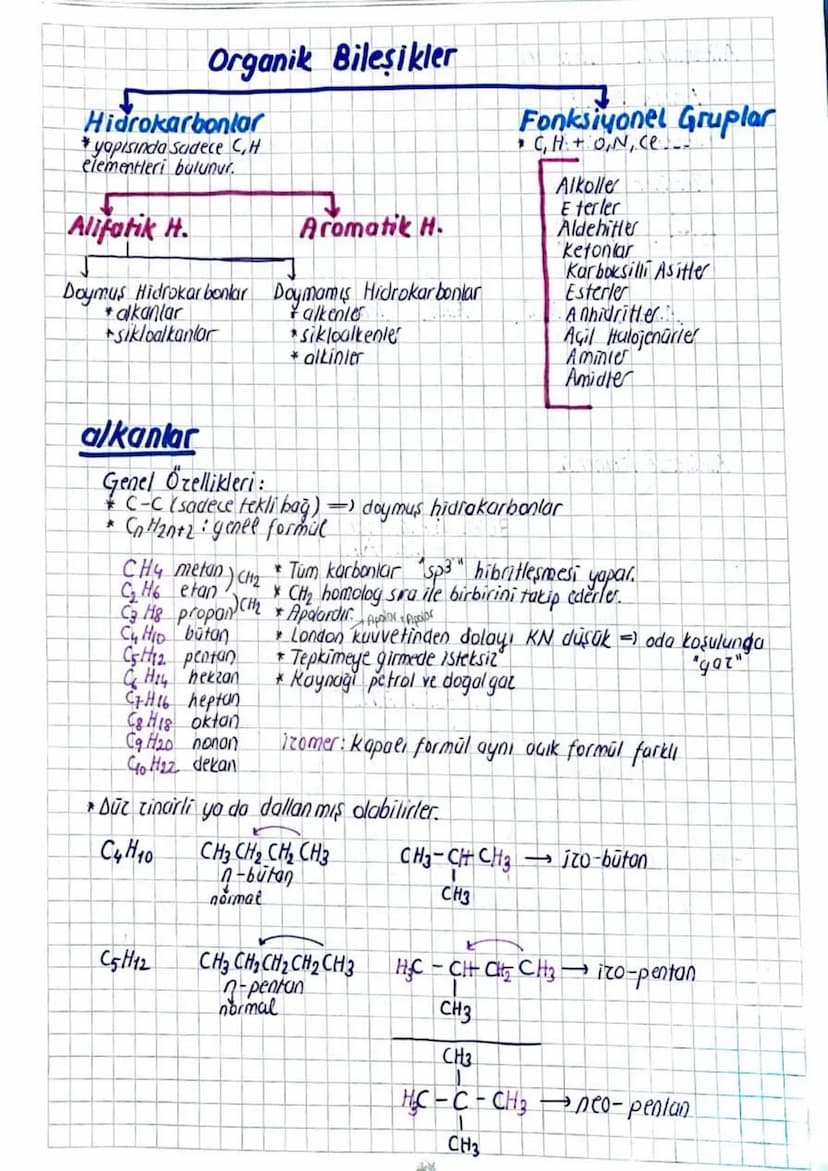 Organik Bileşikler
Hidrokarbonlar
* yapısında sadece C, H
elementleri bulunur.
Fonksiyonel Gruplar
* C, H + O, N, Cl ...
Alkoller
Eterler
Aldehitler
Ketonlar
Karboksilli Asitler
Esterler
Anhidritler
Açil Halojenürler
Aminler
Amidler
Alifatik H.
Aromatik H.
Doymuş Hidrokarbonlar
* alkanlar
* sikloalkanlar
Doymamış Hidrokarbonlar
* alkenler
* sikloalkenler
* alkinler
alkanlar
Genel Özellikleri:
* C-C (sadece tekli bağ) => doymuş hidrakarbonlar
* CnH2n+2 : genel formül
CH4 metan
C2H6 etan
C3H8 propan
C4H10 bütan
C5H12 pentan
C6H14 hekzan
C7H16 heptan
C8H18 oktan
C9H20 nonan
C10H22 dekan
CH2
CH2
* Tüm karbonlar "sp3" hibritleşmesi yapar.
* CH2 homolog sıra ile birbirini takip ederler.
* Apolardır.
Apolar + Apolar
* London kuvvetinden dolayı KN düşük => oda koşulunda
"gaz"
* Tepkimeye girmede isteksiz
* Kaynağı petrol ve doğal gaz
izomer: kapalı formül aynı açık formül farklı
* Düz zincirli ya da dallanmış olabilirler.
C4H10 CH3 CH2 CH2 CH3
n-bütan
normal
CH3 - CH CH3 → izo-bütan
CH3
C5H12 CH3 CH2 CH2 CH2 CH3
n-pentan
normal
H3C - CH CH2 CH3 → izo-pentan
CH3
CH3
H3C - C - CH3 → neo-pentan
CH3